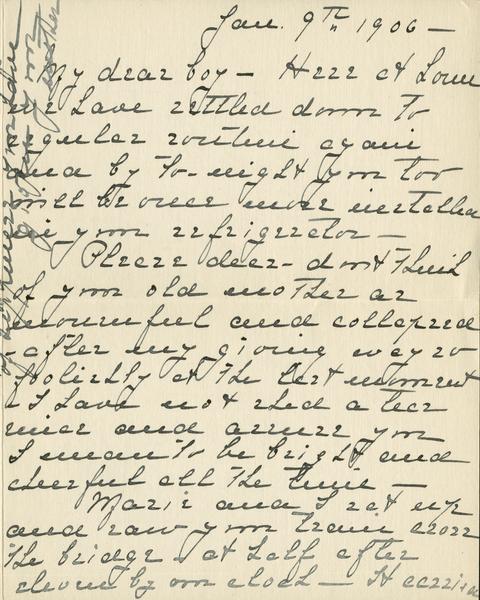 Jan. 9th 1906 —
My dear boy — Here at home
we have settled down to
regular routine again
and by to-night you too
will be once more installed
in your refrigerator —
Please dear — don't think
of your old mother as
mournful and collapsed
after my giving way so
foolishly at the last moment
— I have not shed a tear
since and assure you
I mean to be bright and
cheerful all the time —
Marie and I sat up
and saw your train cross
the bridge — at half after
eleven by our clock — It carried
of happiness
your mother